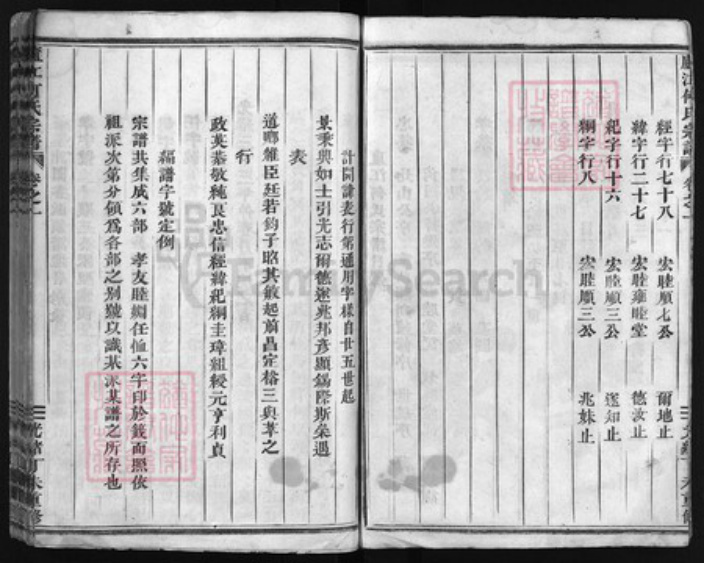 經字行七十八 宏睦順七公 爾地止
緯字行二十七 宏睦雍睦堂 德汝止
紀字行十六 宏睦順三公 遂知止
綱字行八 宏睦順三公 兆妹止
廬江何氏宗譜 卷之一
計開諱表行第通用字樣自廿五世起
景秉與如士引光志爾德遂兆邦彥顯錫際斯榮遇
表
道鄉維臣廷若鈞子昭其敏起前昌定裕三與莘之
行
政英恭敬純良忠信經緯紀綱圭璋組綬元亨利貞
編譜字號定例
宗譜共集成六部 孝友睦婣任恤六字印於簽面照依
祖派次第分領爲各部之別號以識某派某譜之所存也
江何氏宗譜 卷之一 光緒丁未重修
FamilySearch